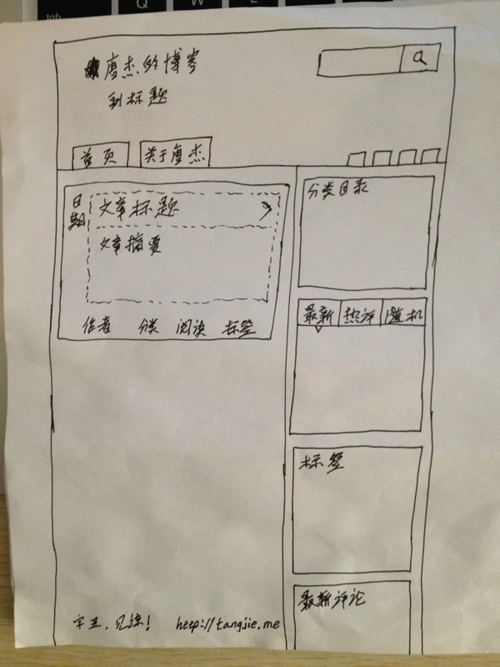 tab Q W
唐杰的博客
副标题
首页 关于唐杰
日期
文章标题
文章摘要
作者 分类 阅读 标签
分类目录
最新 热评 随机
标签
最新评论
字丑,见谅! http://tangjie.me